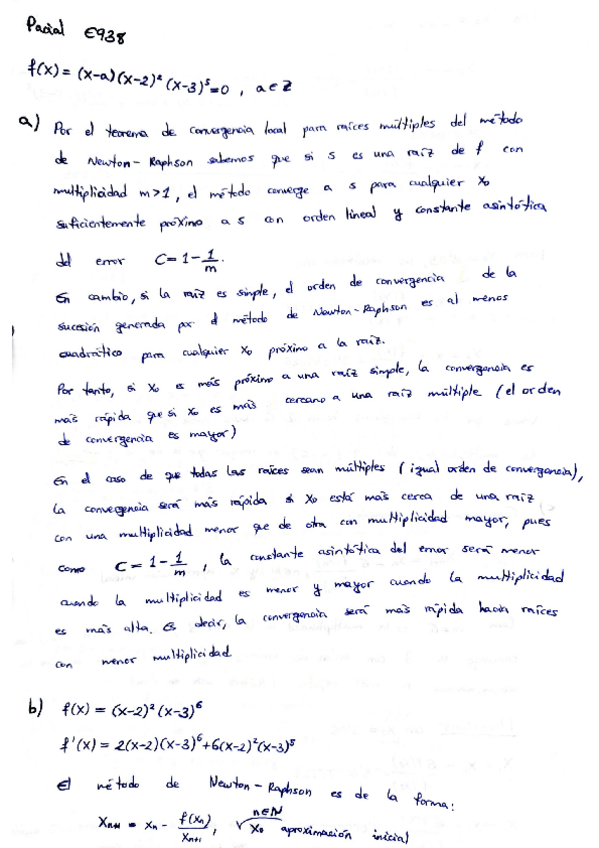 Pacial E938
f(x) = (x-a)(x-2)² (x-3)⁵=0 , a∈Z
a) Por el teorema de convergencia local para raíces múltiples del método
de Newton-Raphson sabemos que si s es una raíz de f con
multiplicidad m>1, el método converge a s para cualquier x₀
suficientemente próximo a s con orden lineal y constante asintótica
del error C= 1- 1/m.
En cambio, si la raíz es simple, el orden de convergencia de la
sucesión generada por el método de Newton-Raphson es al menos
cuadrático para cualquier x₀ próximo a la raíz.
Por tanto, si x₀ es más próximo a una raíz simple, la convergencia es
más rápida que si x₀ es más cercano a una raíz múltiple (el orden
de convergencia es mayor)
En el caso de que todas las raíces sean múltiples (igual orden de convergencia),
la convergencia será más rápida si x₀ está más cerca de una raíz
con una multiplicidad menor que de otra con multiplicidad mayor, pues
como C= 1- 1/m , la constante asintótica del error será menor
cuando la multiplicidad es menor y mayor cuando la multiplicidad
es más alta. Es decir, la convergencia será más rápida hacia raíces
con menor multiplicidad
b) f(x) = (x-2)² (x-3)⁶
f'(x) = 2(x-2)(x-3)⁶+6(x-2)²(x-3)⁵
El método de Newton-Raphson es de la forma:
xₙ₊₁ = xₙ - f(xₙ)/xₙ₊₁, n∈N
x₀ aproximación inicial